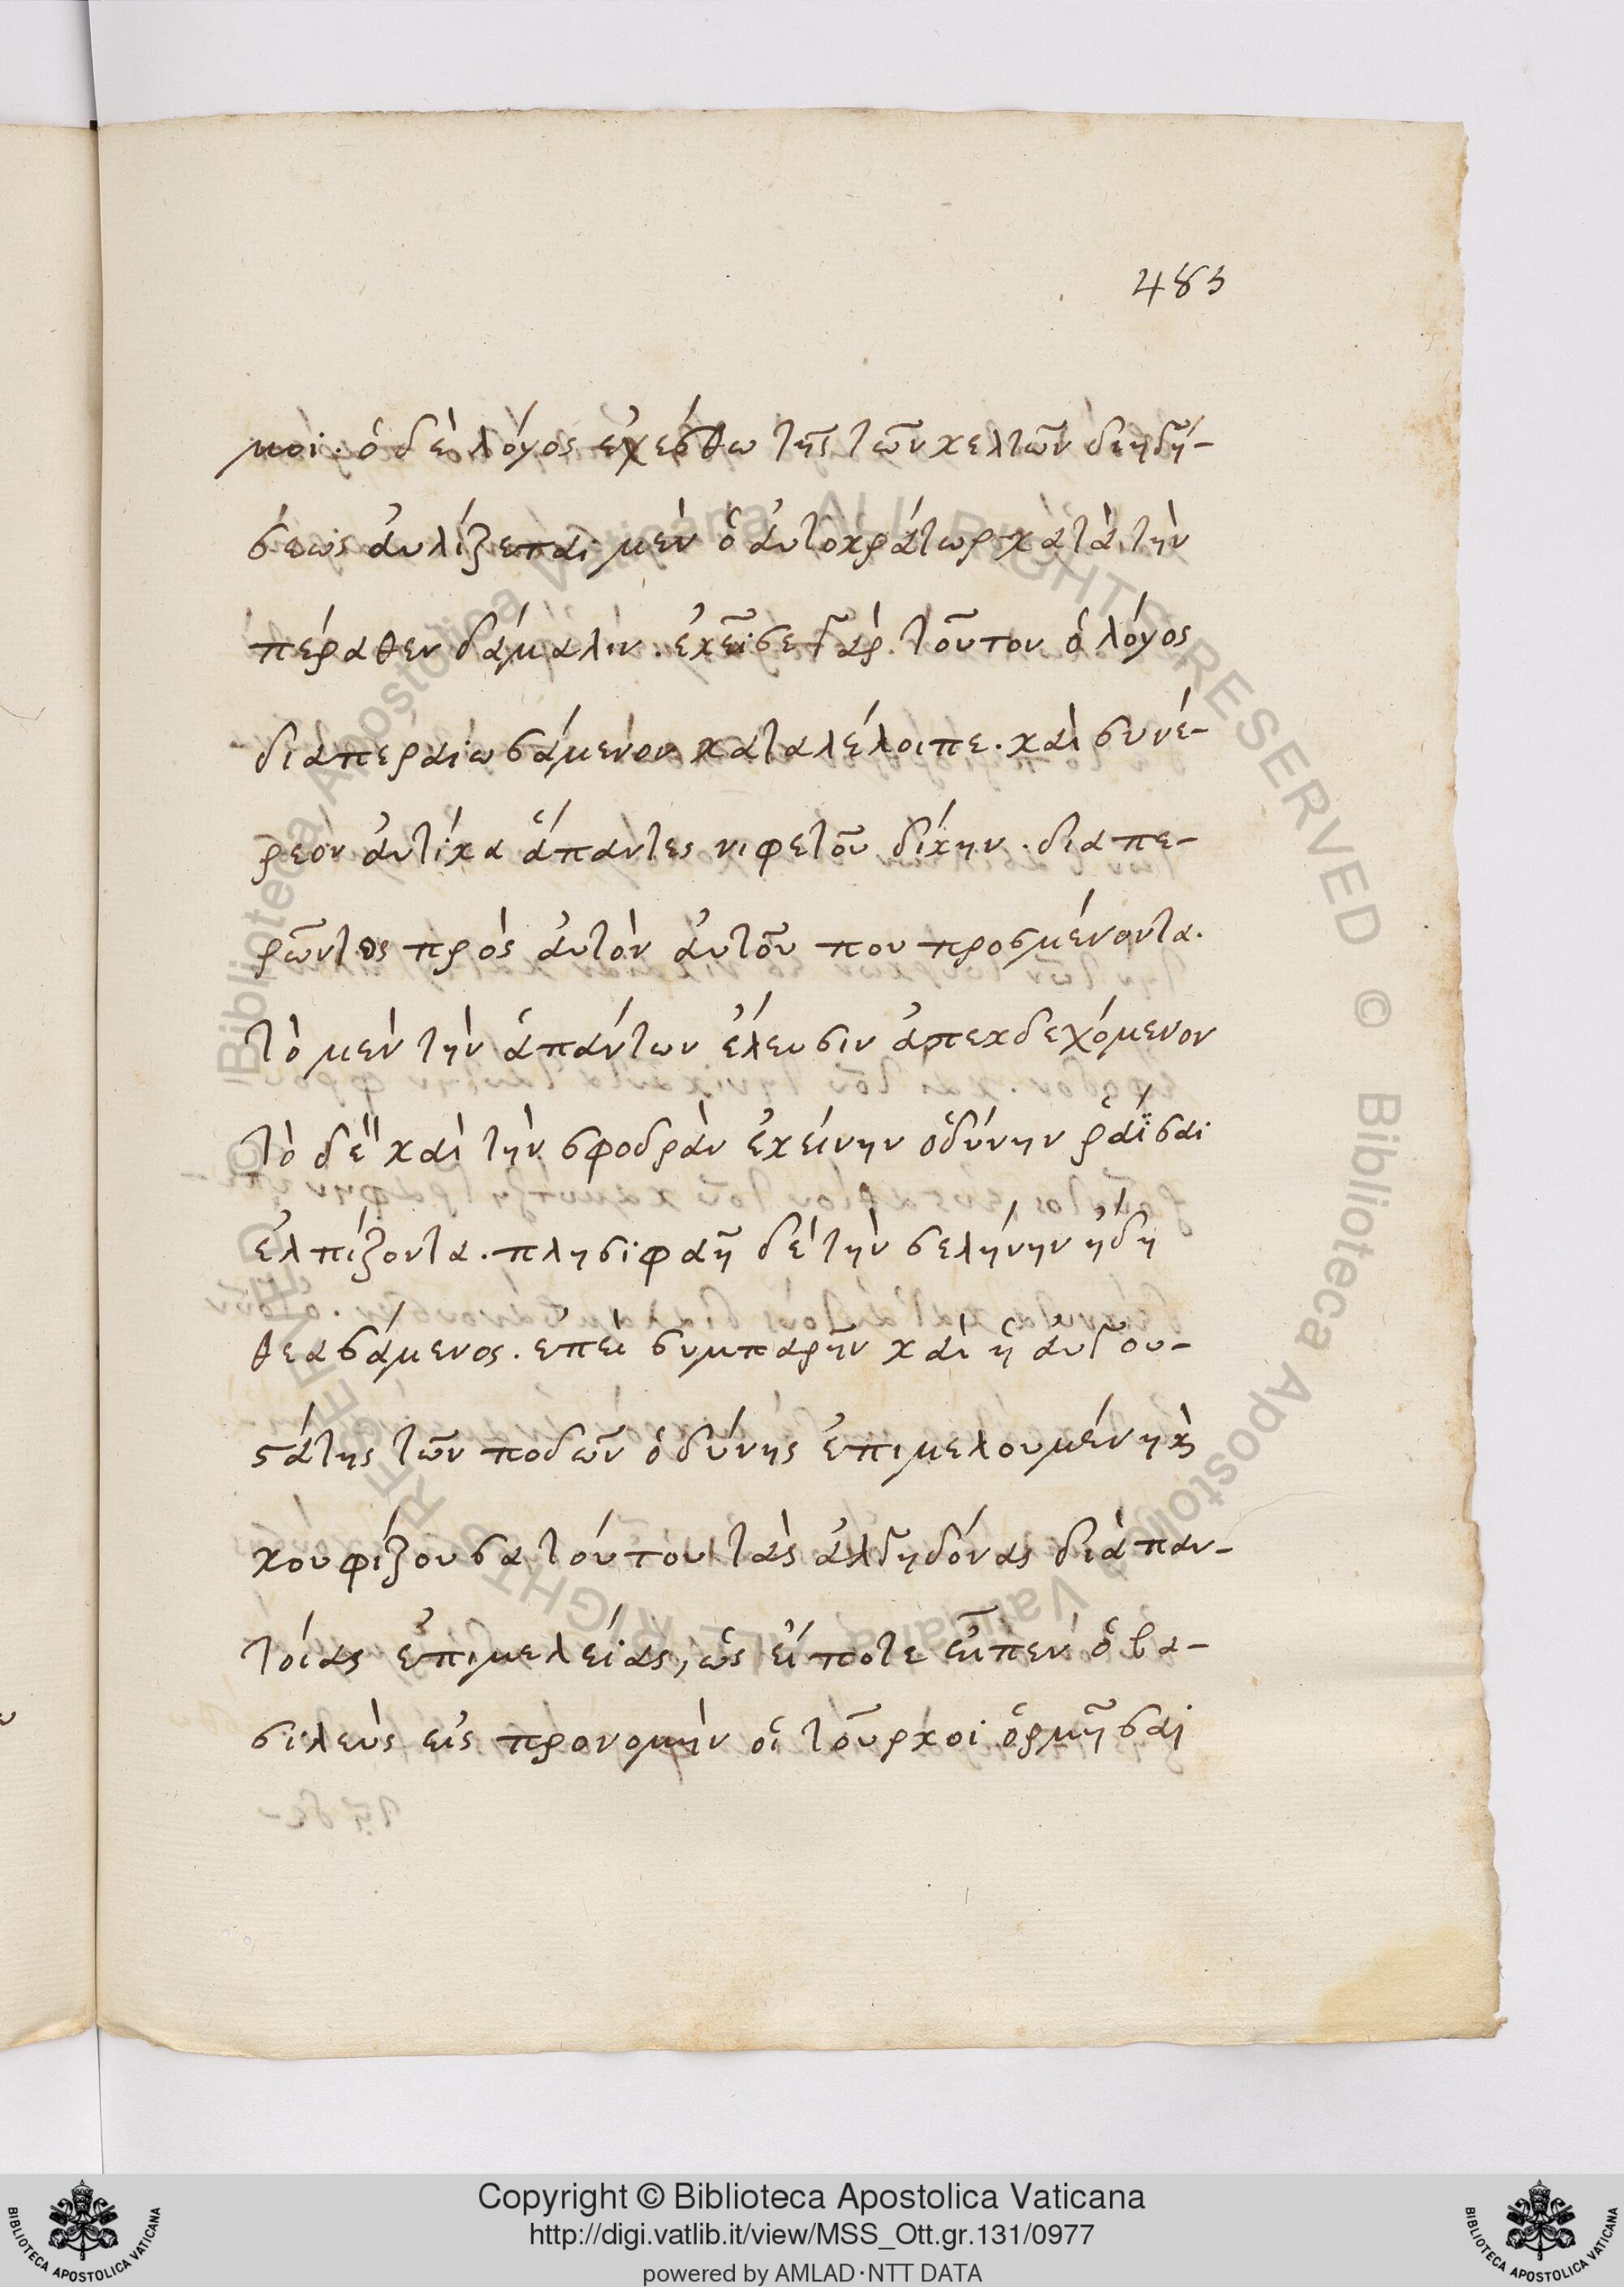 483
μοι. ὁ δὲ λόγος ἐχέσθω τῆς τῶν κελτῶν διηγή-
σεως ἀυλίζεται μὲν ὁ ἀυτοκράτωρ κατὰ τὴν
πέραθεν δάμαλιν. ἐκεῖσε γὰρ τοῦτον ὁ λόγος
διαπεραιωσάμενον καταλέλοιπε. καὶ συνέ-
ρεον ἀυτίκα ἅπαντες νιφετοῦ δίκην. διαπε-
ρῶντες πρὸς ἀυτὸν ἀυτοῦ που προσμένοντα.
τὸ μὲν τὴν ἁπάντων ἔλευσιν ἀπεκδεχόμενον
τὸ δὲ καὶ τὴν σφοδρὰν ἐκείνην ὀδύνην ῥαΐσαι
ἐλπίζοντα. πλησιφαῆ δὲ τὴν σελήνην ἤδη
θεασάμενος. ἐπεὶ συμπαρῆν καὶ ἡ ἀυγου-
στα τῆς τῶν ποδῶν ὀδύνης ἐπιμελουμένη καὶ
κουφίζουσα τούτου τὰς ἀλγηδόνας διὰ παν-
τοίας ἐπιμελείας, ὡς εἴ ποτε εἶπεν ὁ βα-
σιλεὺς εἰς προνομὴν οἱ τοῦρκοι ὁρμῆσαι
Copyright © Biblioteca Apostolica Vaticana
http://digi.vatlib.it/view/MSS_Ott.gr.131/0977
powered by AMLAD·NTT DATA
BIBLIOTECA APOSTOLICA VATICANA
BIBLIOTECA APOSTOLICA VATICANA